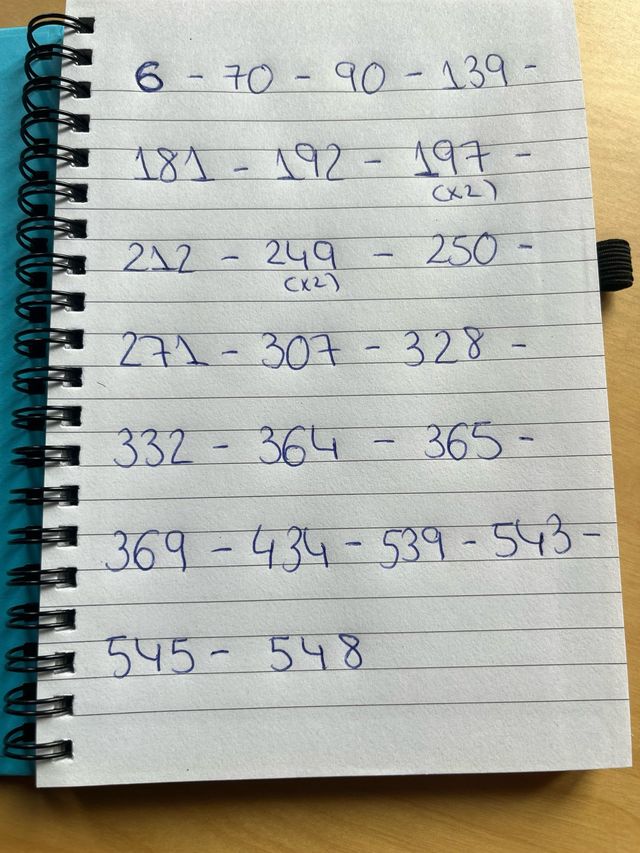 6 - 70 - 90 - 139 -
181 - 192 - 197 -
(x2)
212 - 249 - 250 -
(x2)
271 - 307 - 328 -
332 - 364 - 365 -
369 - 434 - 539 - 543 -
545 - 548